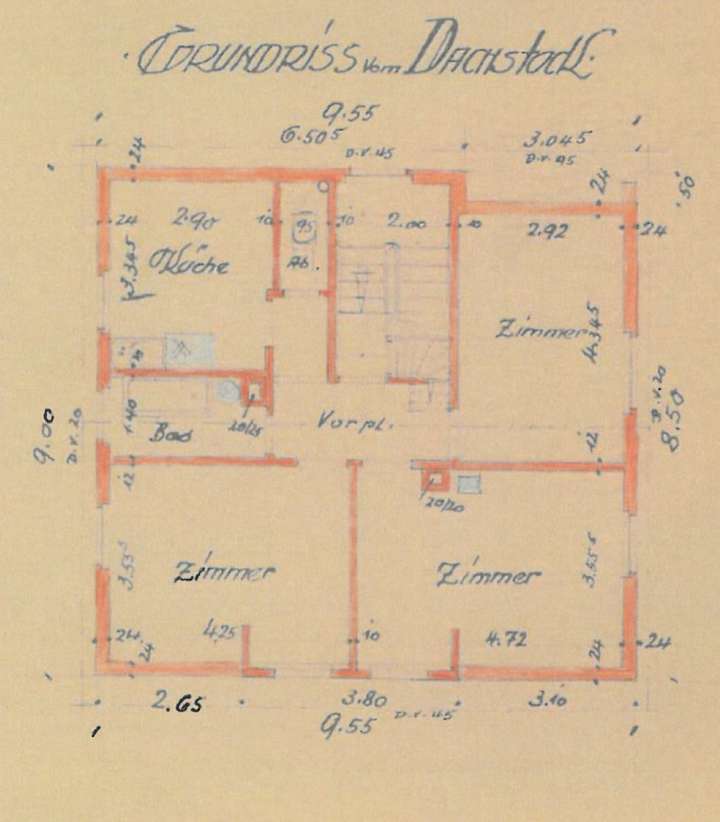 GRUNDRISS vom DACHSTOCK.
9.55
6.50⁵ 3.045
D.V. 45 D.V. 95
24
24
50
24 2.90 10 95 10 2.00 10 2.92 24
Küche Ab.
3.345
Zimmer
4.345
9.00
D.V. 20
D.V. 20
8.50
1.40
Bad 20/25
Vorpl.
12 12
20/20
3.55⁵ 3.55⁵
Zimmer Zimmer
24 4.25 10 4.72 24
24 24
2.65 3.80 3.10
9.55 D.V. 45